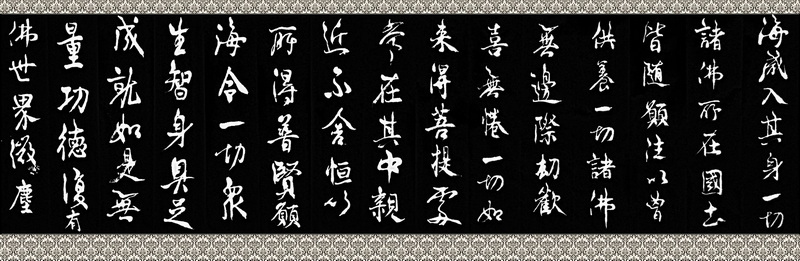 海咸入其身一切
諸佛所在國土
皆隨願往以曾
供養一切諸佛
無邊際劫歡
喜無惓一切如
來得菩提處
常在其中親
近不舍恒以
所得普賢願
海令一切眾
生智身具足
成就如是無
量功德復有
佛世界微塵